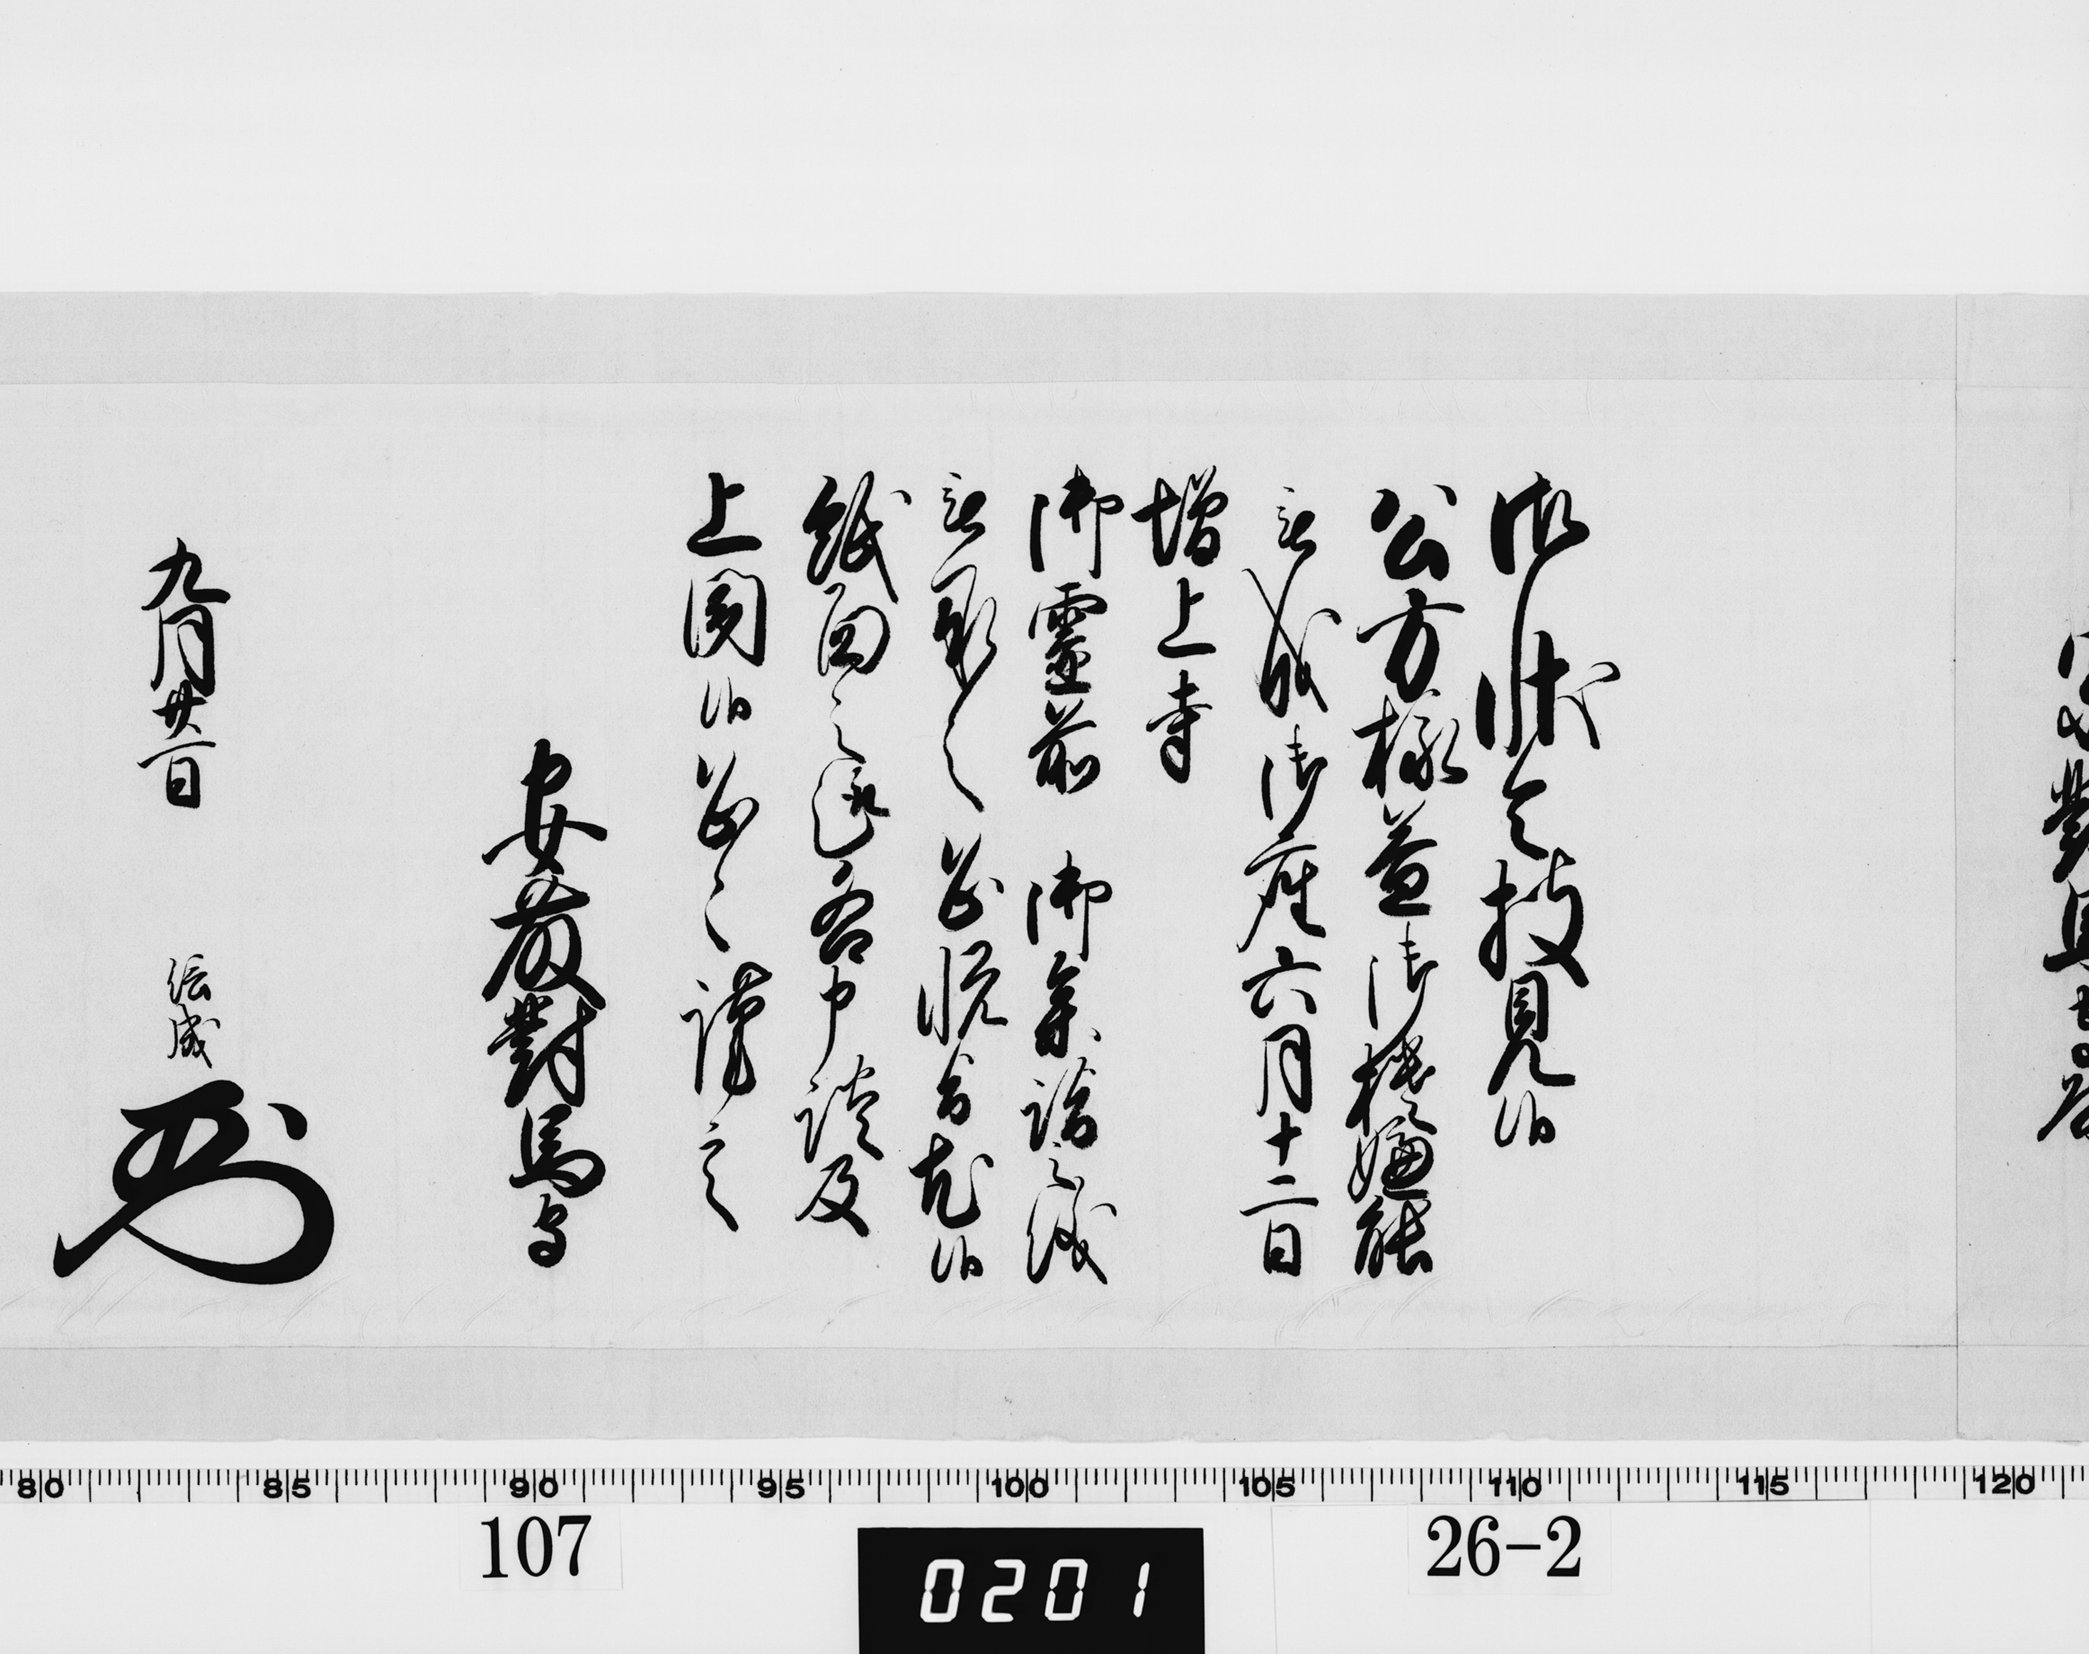 御状令披見候
公方様益御機嫌能
被成御座六月十二日
増上寺
御霊前 御参詣之儀
被承之 恐悦旨尤候
紙面之趣各申談及
上聞候 恐々謹言
安藤對馬守
九月廿一日
對馬
80 85 90 95 100 105 110 115 120
107
0201
26-2